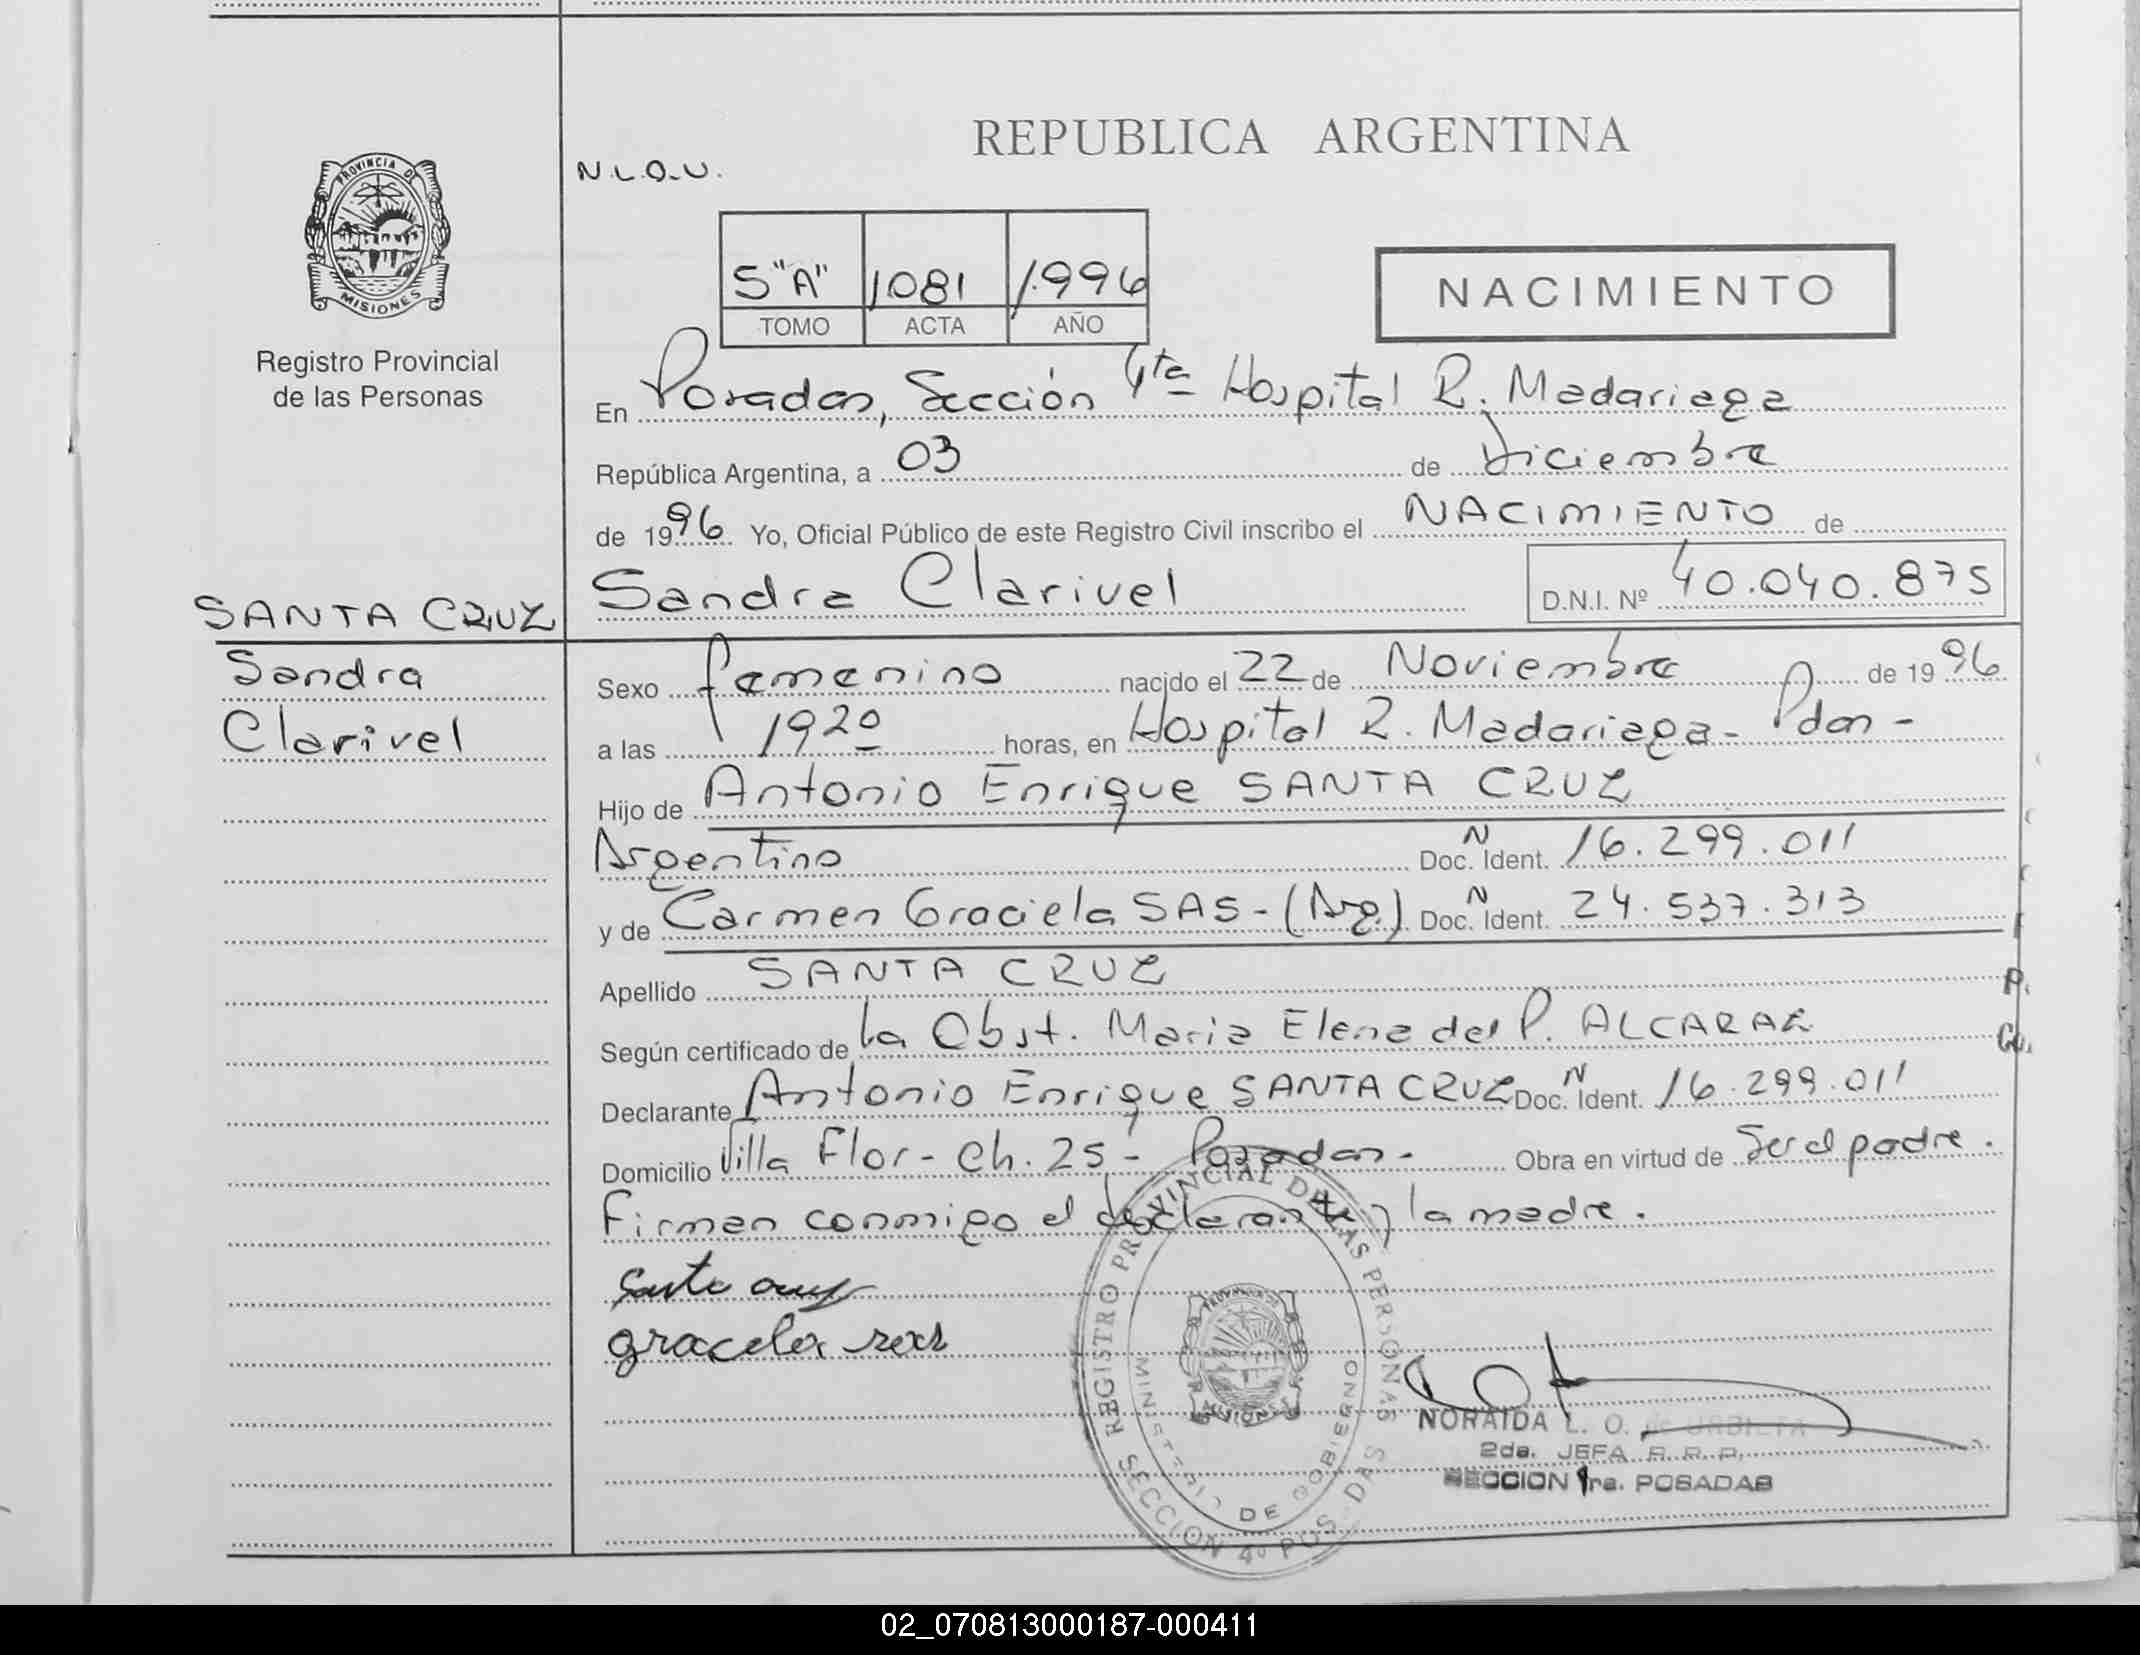 REPUBLICA ARGENTINA
N.L.O.U.
PROVINCIA DE
MISIONES
Registro Provincial
de las Personas
5"A" 1081 1996
TOMO ACTA AÑO
NACIMIENTO
En Posadas, Sección 4ta Hospital R. Madariaga
República Argentina, a 03 de Diciembre
de 1996 Yo, Oficial Público de este Registro Civil inscribo el NACIMIENTO de
Sandra Clarivel D.N.I. Nº 40.040.875
SANTA CRUZ
Sandra
Clarivel
Sexo femenino nacido el 22 de Noviembre de 1996
a las 1920 horas, en Hospital R. Madariaga - Pdas -
Hijo de Antonio Enrique SANTA CRUZ
Argentino Doc. N Ident. 16.299.011
y de Carmen Graciela SAS - (Arg.) Doc. N Ident. 24.537.313
Apellido SANTA CRUZ
Según certificado de la Obst. Maria Elena del P. ALCARAZ
Declarante Antonio Enrique SANTA CRUZ Doc. N Ident. 16.299.011
Domicilio Villa Flor - Ch. 25 - Posadas - Obra en virtud de Ser el padre.
Firman conmigo el declarante y la madre.
P.
REGISTRO PROVINCIAL DE LAS PERSONAS
SECCION 4º POSADAS
MINISTERIO DE GOBIERNO
NORAIDA L. O. de URBIETA
2da. JEFA R. R. P.
SECCION 1ra. POSADAS
02_070813000187-000411